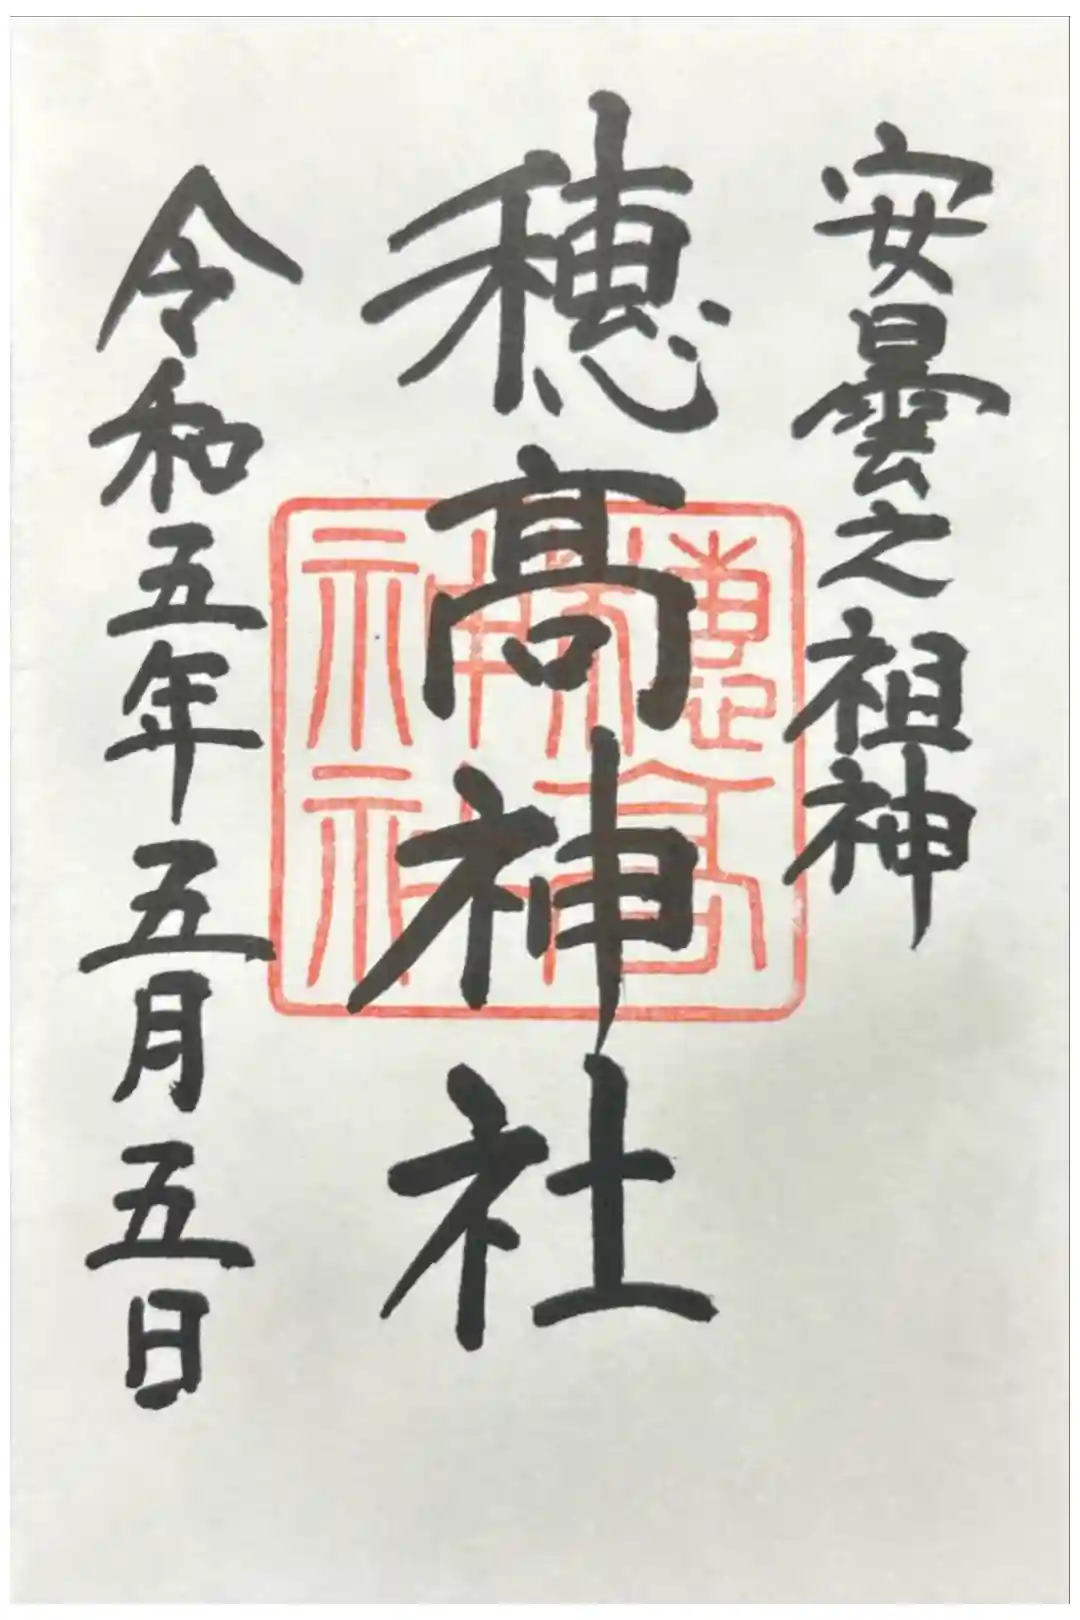 安曇之祖神
穂髙神社
令和五年五月五日
穂髙神社